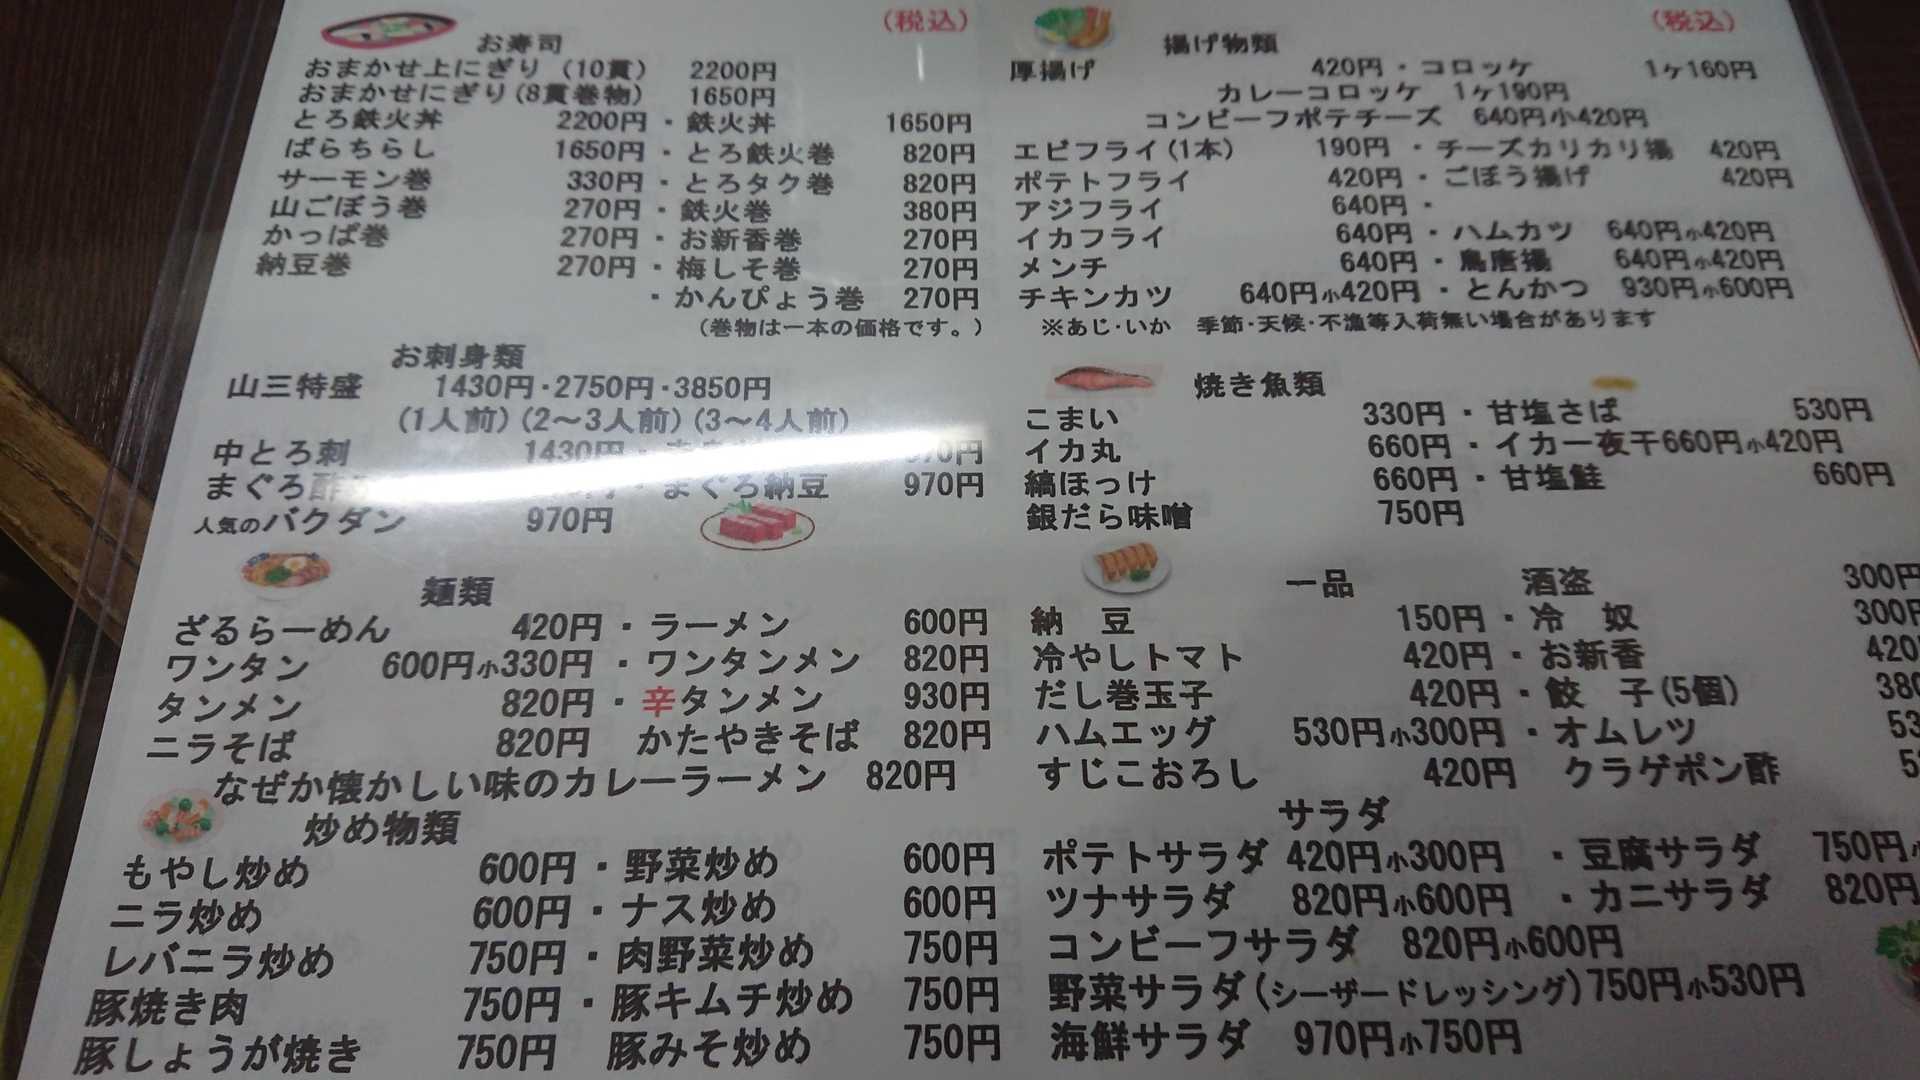 お寿司 (税込)
おまかせ上にぎり (10貫) 2200円
おまかせにぎり(8貫巻物) 1650円
とろ鉄火丼 2200円・鉄火丼 1650円
ばらちらし 1650円・とろ鉄火巻 820円
サーモン巻 330円・とろタク巻 820円
山ごぼう巻 270円・鉄火巻 380円
かっぱ巻 270円・お新香巻 270円
納豆巻 270円・梅しそ巻 270円
・かんぴょう巻 270円
(巻物は一本の価格です。)
お刺身類
山三特盛 1430円・2750円・3850円
(1人前)(2〜3人前)(3〜4人前)
中とろ刺 1430円・
まぐろ酢 ・まぐろ納豆 970円
人気のバクダン 970円
麺類
ざるらーめん 420円・ラーメン 600円
ワンタン 600円小330円・ワンタンメン 820円
タンメン 820円・辛タンメン 930円
ニラそば 820円 かたやきそば 820円
なぜか懐かしい味のカレーラーメン 820円
炒め物類
もやし炒め 600円・野菜炒め 600円
ニラ炒め 600円・ナス炒め 600円
レバニラ炒め 750円・肉野菜炒め 750円
豚焼き肉 750円・豚キムチ炒め 750円
豚しょうが焼き 750円 豚みそ炒め 750円
揚げ物類 (税込)
厚揚げ 420円・コロッケ 1ヶ160円
カレーコロッケ 1ヶ190円
コンビーフポテチーズ 640円小420円
エビフライ(1本) 190円・チーズカリカリ揚 420円
ポテトフライ 420円・ごぼう揚げ 420円
アジフライ 640円・
イカフライ 640円・ハムカツ 640円小420円
メンチ 640円・鳥唐揚 640円小420円
チキンカツ 640円小420円・とんかつ 930円小600円
※あじ・いか 季節・天候・不漁等入荷無い場合があります
焼き魚類
こまい 330円・甘塩さば 530円
イカ丸 660円・イカ一夜干660円小420円
縞ほっけ 660円・甘塩鮭 660円
銀だら味噌 750円
一品 酒盗 300円
納 豆 150円・冷 奴 300円
冷やしトマト 420円・お新香 420
だし巻玉子 420円・餃 子(5個) 380
ハムエッグ 530円小300円・オムレツ
すじこおろし 420円 クラゲポン酢
サラダ
ポテトサラダ 420円小300円 ・豆腐サラダ 750円
ツナサラダ 820円小600円 ・カニサラダ 820円
コンビーフサラダ 820円小600円
野菜サラダ(シーザードレッシング)750円小530円
海鮮サラダ 970円小750円